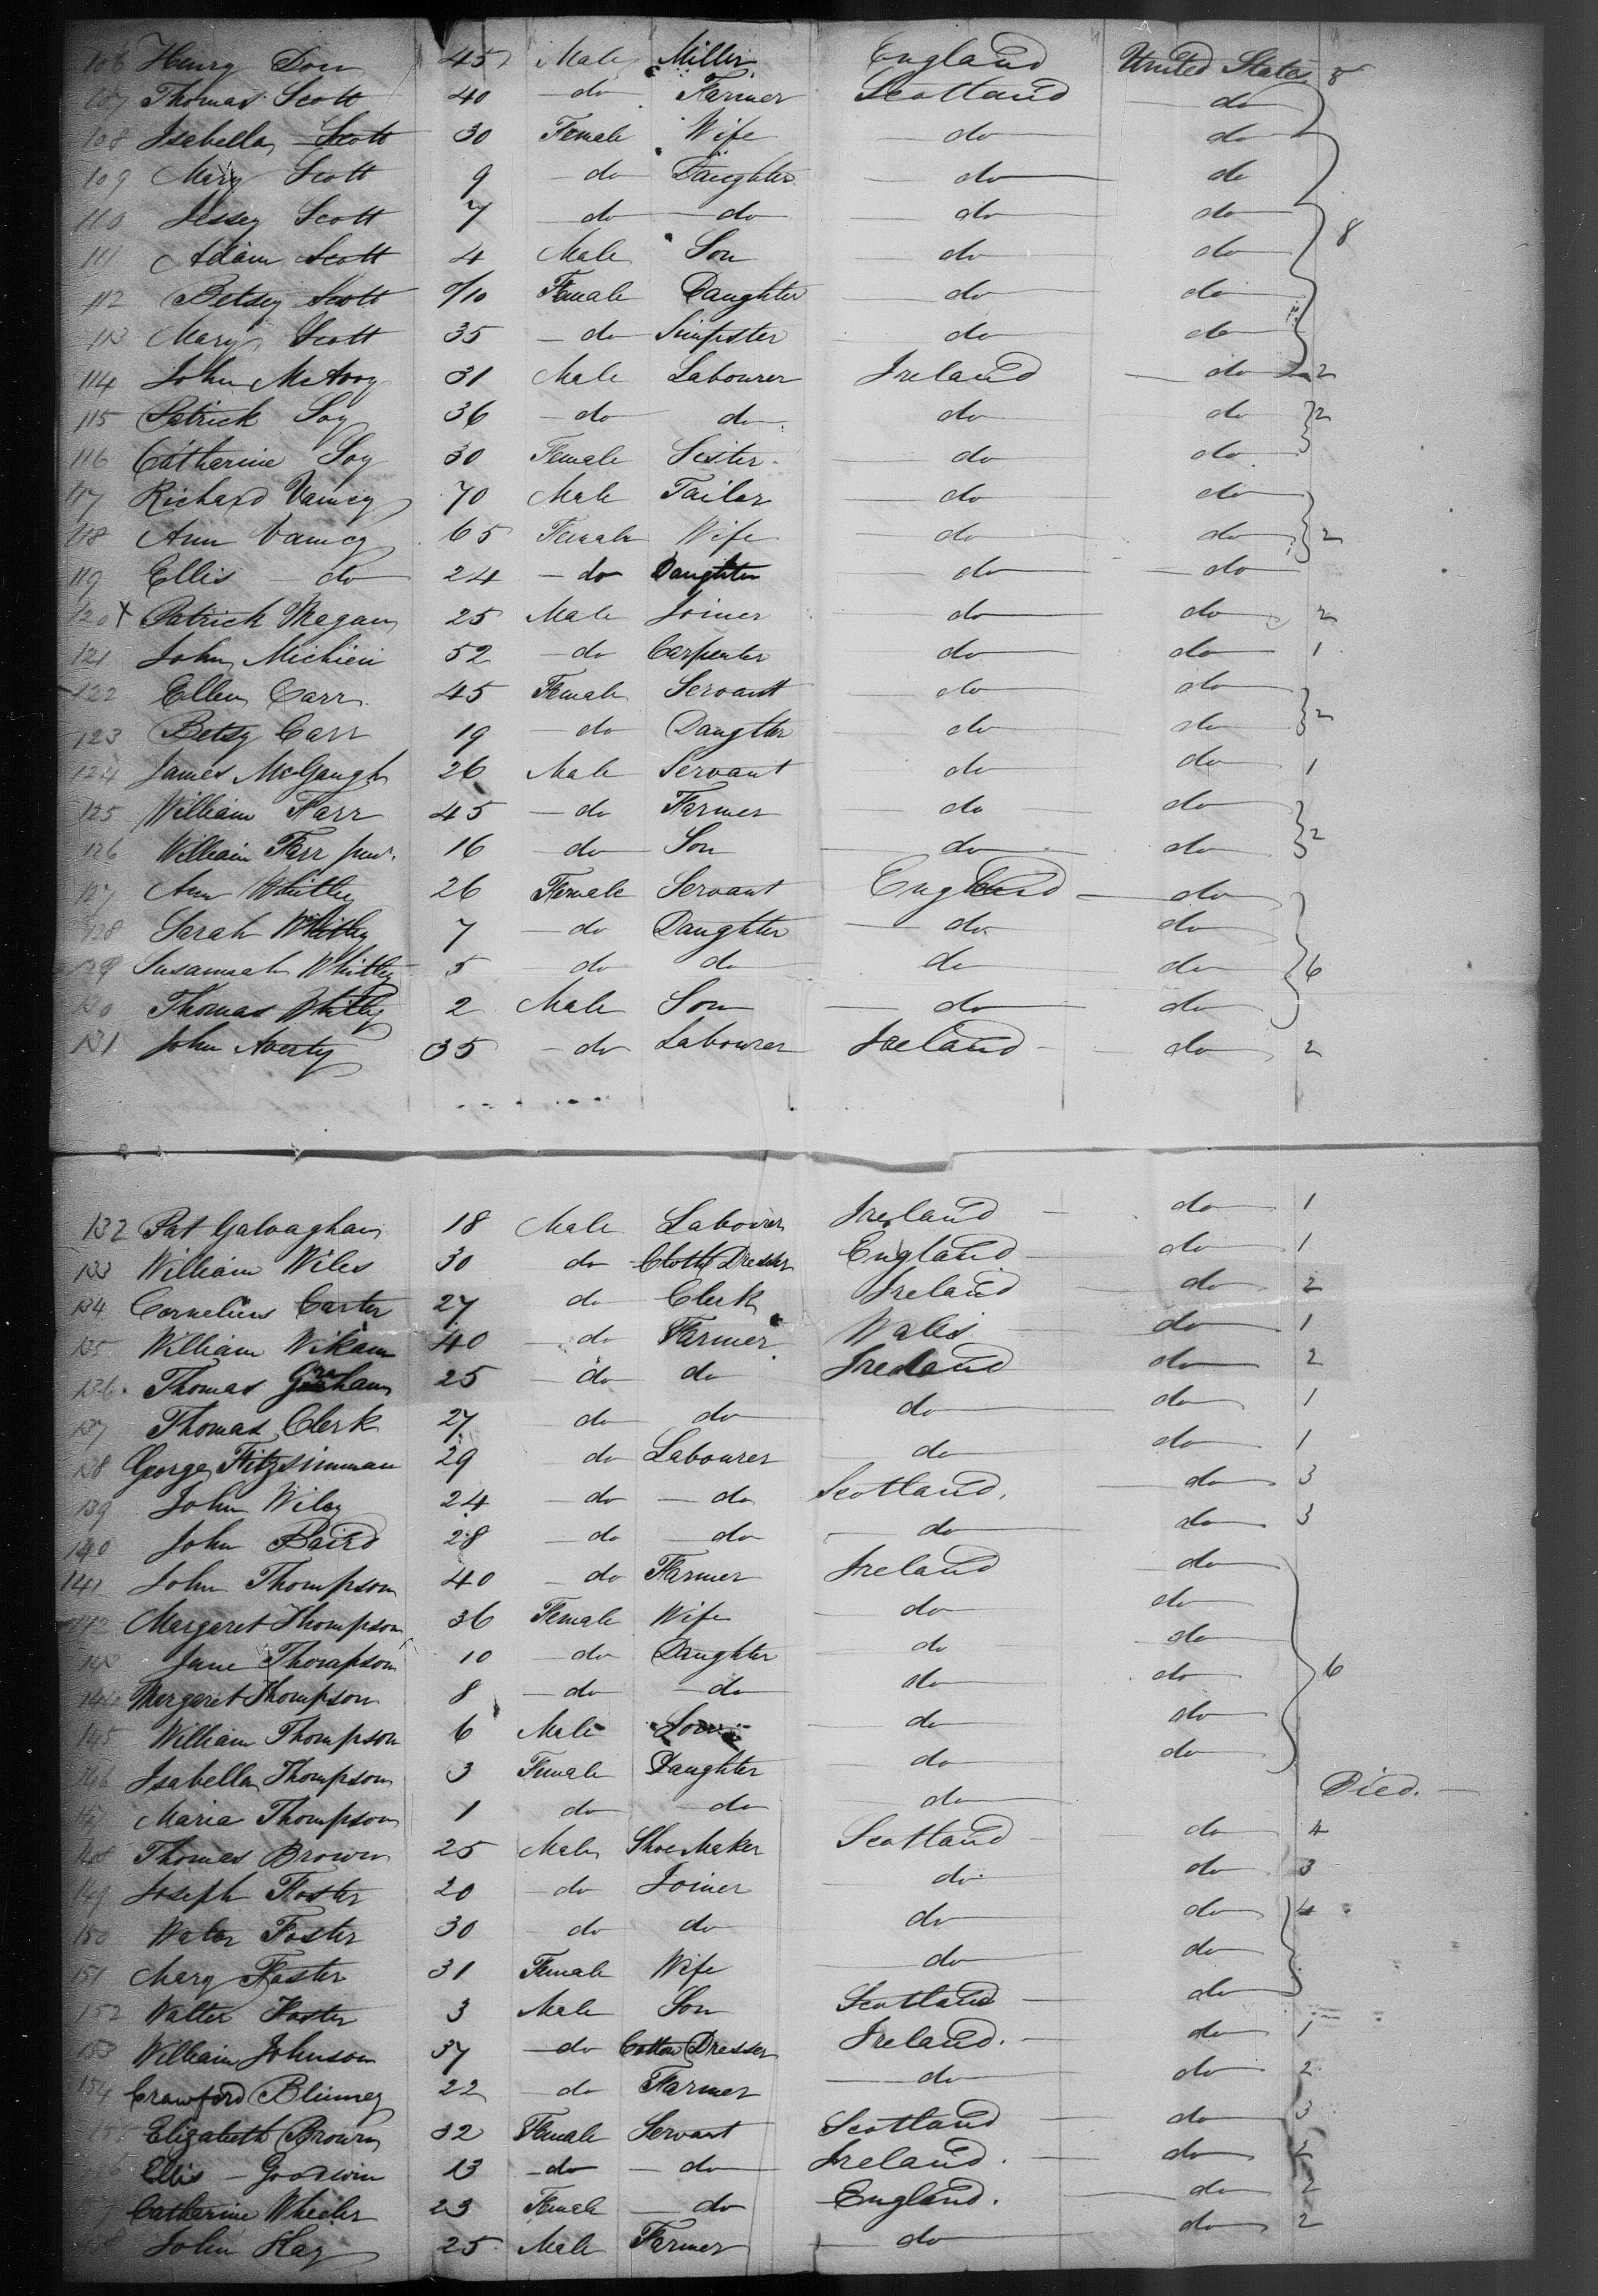 106 Henry Don 45 Male Miller England United States 8
107 Thomas Scott 40 do Farmer Scotland do
108 Isabella Scott 30 Female Wife do do
109 Mary Scott 9 do Daughter do do
110 Jessey Scott 7 do do do do 8
111 Adam Scott 4 Male Son do do
112 Betsey Scott /10 Female Daughter do do
113 Mary Scott 35 do do do
114 John McAvoy 31 Male Labourer Ireland do 2
115 Patrick Loy 36 do do do do 2
116 Catherine Loy 30 Female Sister do do
117 Richard 70 Male Tailor do do
118 Ann 65 Female Wife do do 2
119 Ellis do 24 do Daughter do do
120 X Patrick Magan 25 Male Joiner do do 2
121 John 52 do Carpenter do do 1
122 Ellen Carr 45 Female Servant do do
123 Betsy Carr 19 do Daugtter do do 2
124 James McGaugh 26 Male Servant do do 1
125 William Farr 45 do Farmer do do
126 William Farr junr. 16 do Son do do 2
127 Ann Whitley 26 Female Servant England do
128 Sarah Whitley 7 do Daughter do do
129 Susannah Whitley 5 do do do do 6
130 Thomas Whitley 2 Male Son do do
131 John Averty 35 do Labourer Ireland do 2
132 Pat Galvaghan 18 Male Labourer Ireland do 1
133 William Wiles 30 do Cloth Dresser England do 1
134 Cornelius Carter 27 do Clerk Ireland do 2
135 William 40 do Farmer Wales do 1
136 Thomas Graham 25 do do Ireland do 2
137 Thomas Clerk 27 do do do do 1
138 George Fitzsimman 29 do Labourer do do 1
139 John Wiley 24 do do Scotland. do 3
140 John Baird 28 do do do do 3
141 John Thompson 40 do Farmer Ireland do
142 Margaret Thompson 36 Female Wife do do
143 Jane Thompson 10 do Daughter do do
144 Margaret Thompson 8 do do do do 6
145 William Thompson 6 Male Son do do
146 Isabella Thompson 3 Female Daughter do do
147 Maria Thompson 1 do do do Died.
148 Thomas Brown 25 Male Shoe Maker Scotland do 4
149 Joseph Foster 20 do Joiner do do 3
150 Water Foster 30 do do do do 4
151 Mary Foster 31 Female Wife do do
152 Walter Foster 3 Male Son Scotland do
153 William Johnson 37 do Cotton Dresser Ireland. do 1
154 Crawford 22 do Farmer do do 2
155 Elizabeth Brown 32 Female Servant Scotland do 3
156 Ellis Goodwin 13 do do Ireland. do 2
157 Catherine Wheeler 23 Female do England. do 2
158 John Hay 25 Male Farmer do do 2